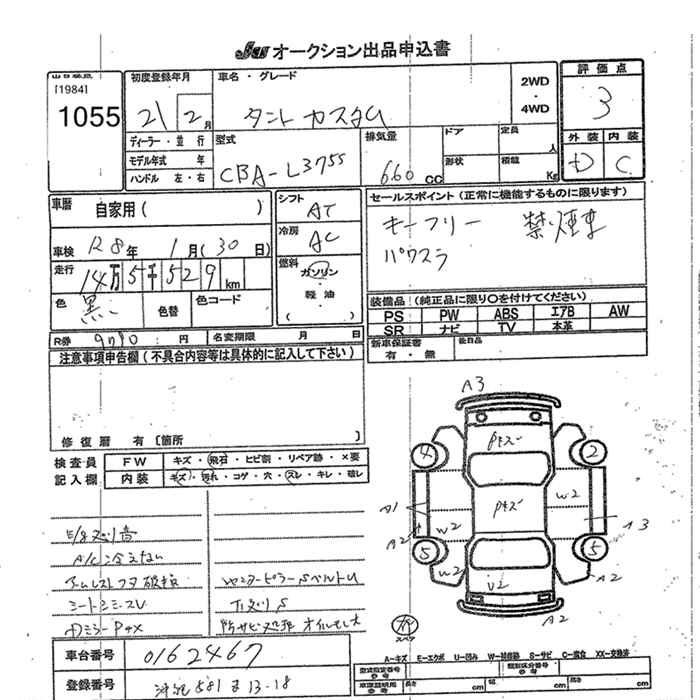 JCS オークション出品申込書
[1984]
1055
初度登録年月
21 2月
ディーラー・並行
モデル年式 年
ハンドル 左・右
車名・グレード
タント カスタム
2WD
・
4WD
型式
CBA-L375S
排気量
660 CC
ドア
定員 人
形状
積載 Kg
評価点
3
外装 内装
D C
車歴
自家用( )
車検 R8年 1月(30日)
走行 14万5千529km
色 黒
色替
色コード
R券 9090 円
名変期限 月 日
シフト AT
冷房 AC
燃料
ガソリン
・
軽油
セールスポイント(正常に機能するものに限ります)
キーフリー 禁煙車
パワスラ
装備品(純正品に限り○を付けてください)
PS PW ABS エアB AW
SR ナビ TV 本革
新車保証書
有・無
後日品
注意事項申告欄(不具合内容等は具体的に記入して下さい)
修復歴 有[箇所 ]
検査員
記入欄
FW キズ・飛石・ヒビ割・リペア跡・×要
内装 キズ・汚れ・コゲ・穴・スレ・キレ・破レ
A/C冷えない
アームレストフタ破損
シートシミ・スレ
下廻りS
車台番号 0162467
登録番号 沖縄 581 ま 13-18
A3
Pキズ
4
2
W2
Pキズ
A1
A2
W2
A3
5
5
W2
A2
U2
A2
スペア
A-キズ E-エクボ U-凹み W-補修跡 S-サビ C-腐食 XX-交換済
型式指定番号
類別区分番号
参考
長さ cm 幅 cm 高さ cm